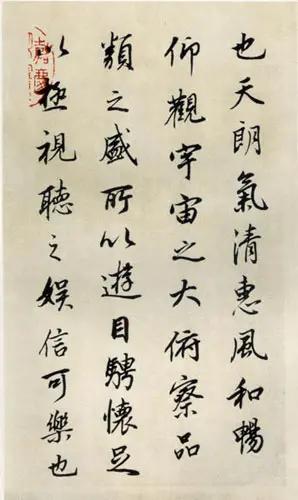 也天朗氣清惠風和暢
仰觀宇宙之大俯察品
類之盛所以遊目騁懷足
以極視聽之娛信可樂也